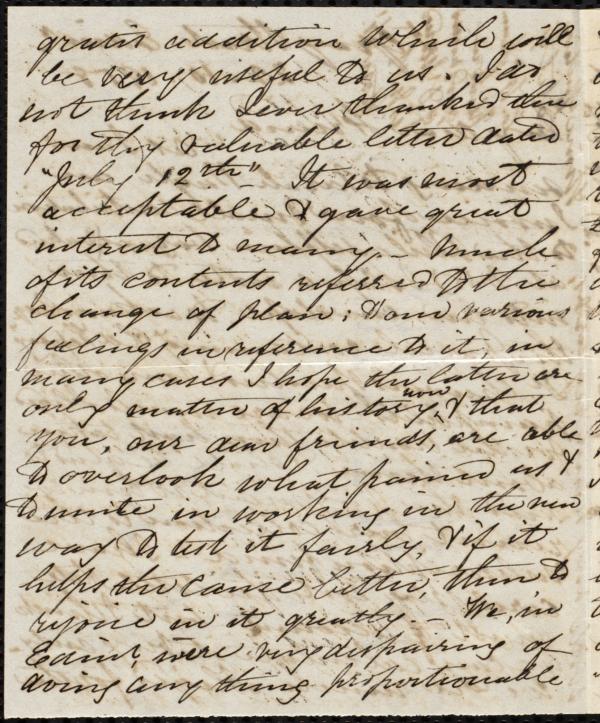 gratis addition which will
be very useful to us. I do
not think I ever thanked thee
for thy valuable letter dated
"July 12th" It was most
acceptable & gave great
interest to many – Much
of its contents referred to the
change of plan; & our various
feelings in reference to it, in
many cases I hope the latter are
only matter of history now, & that
you, our dear friends, are able
to overlook what pained us &
to unite in working in the new
way to test it fairly, & if it
helps the cause better, then to
rejoice in it greatly – We, in
Edinr, were very despairing of
doing any thing proportionable